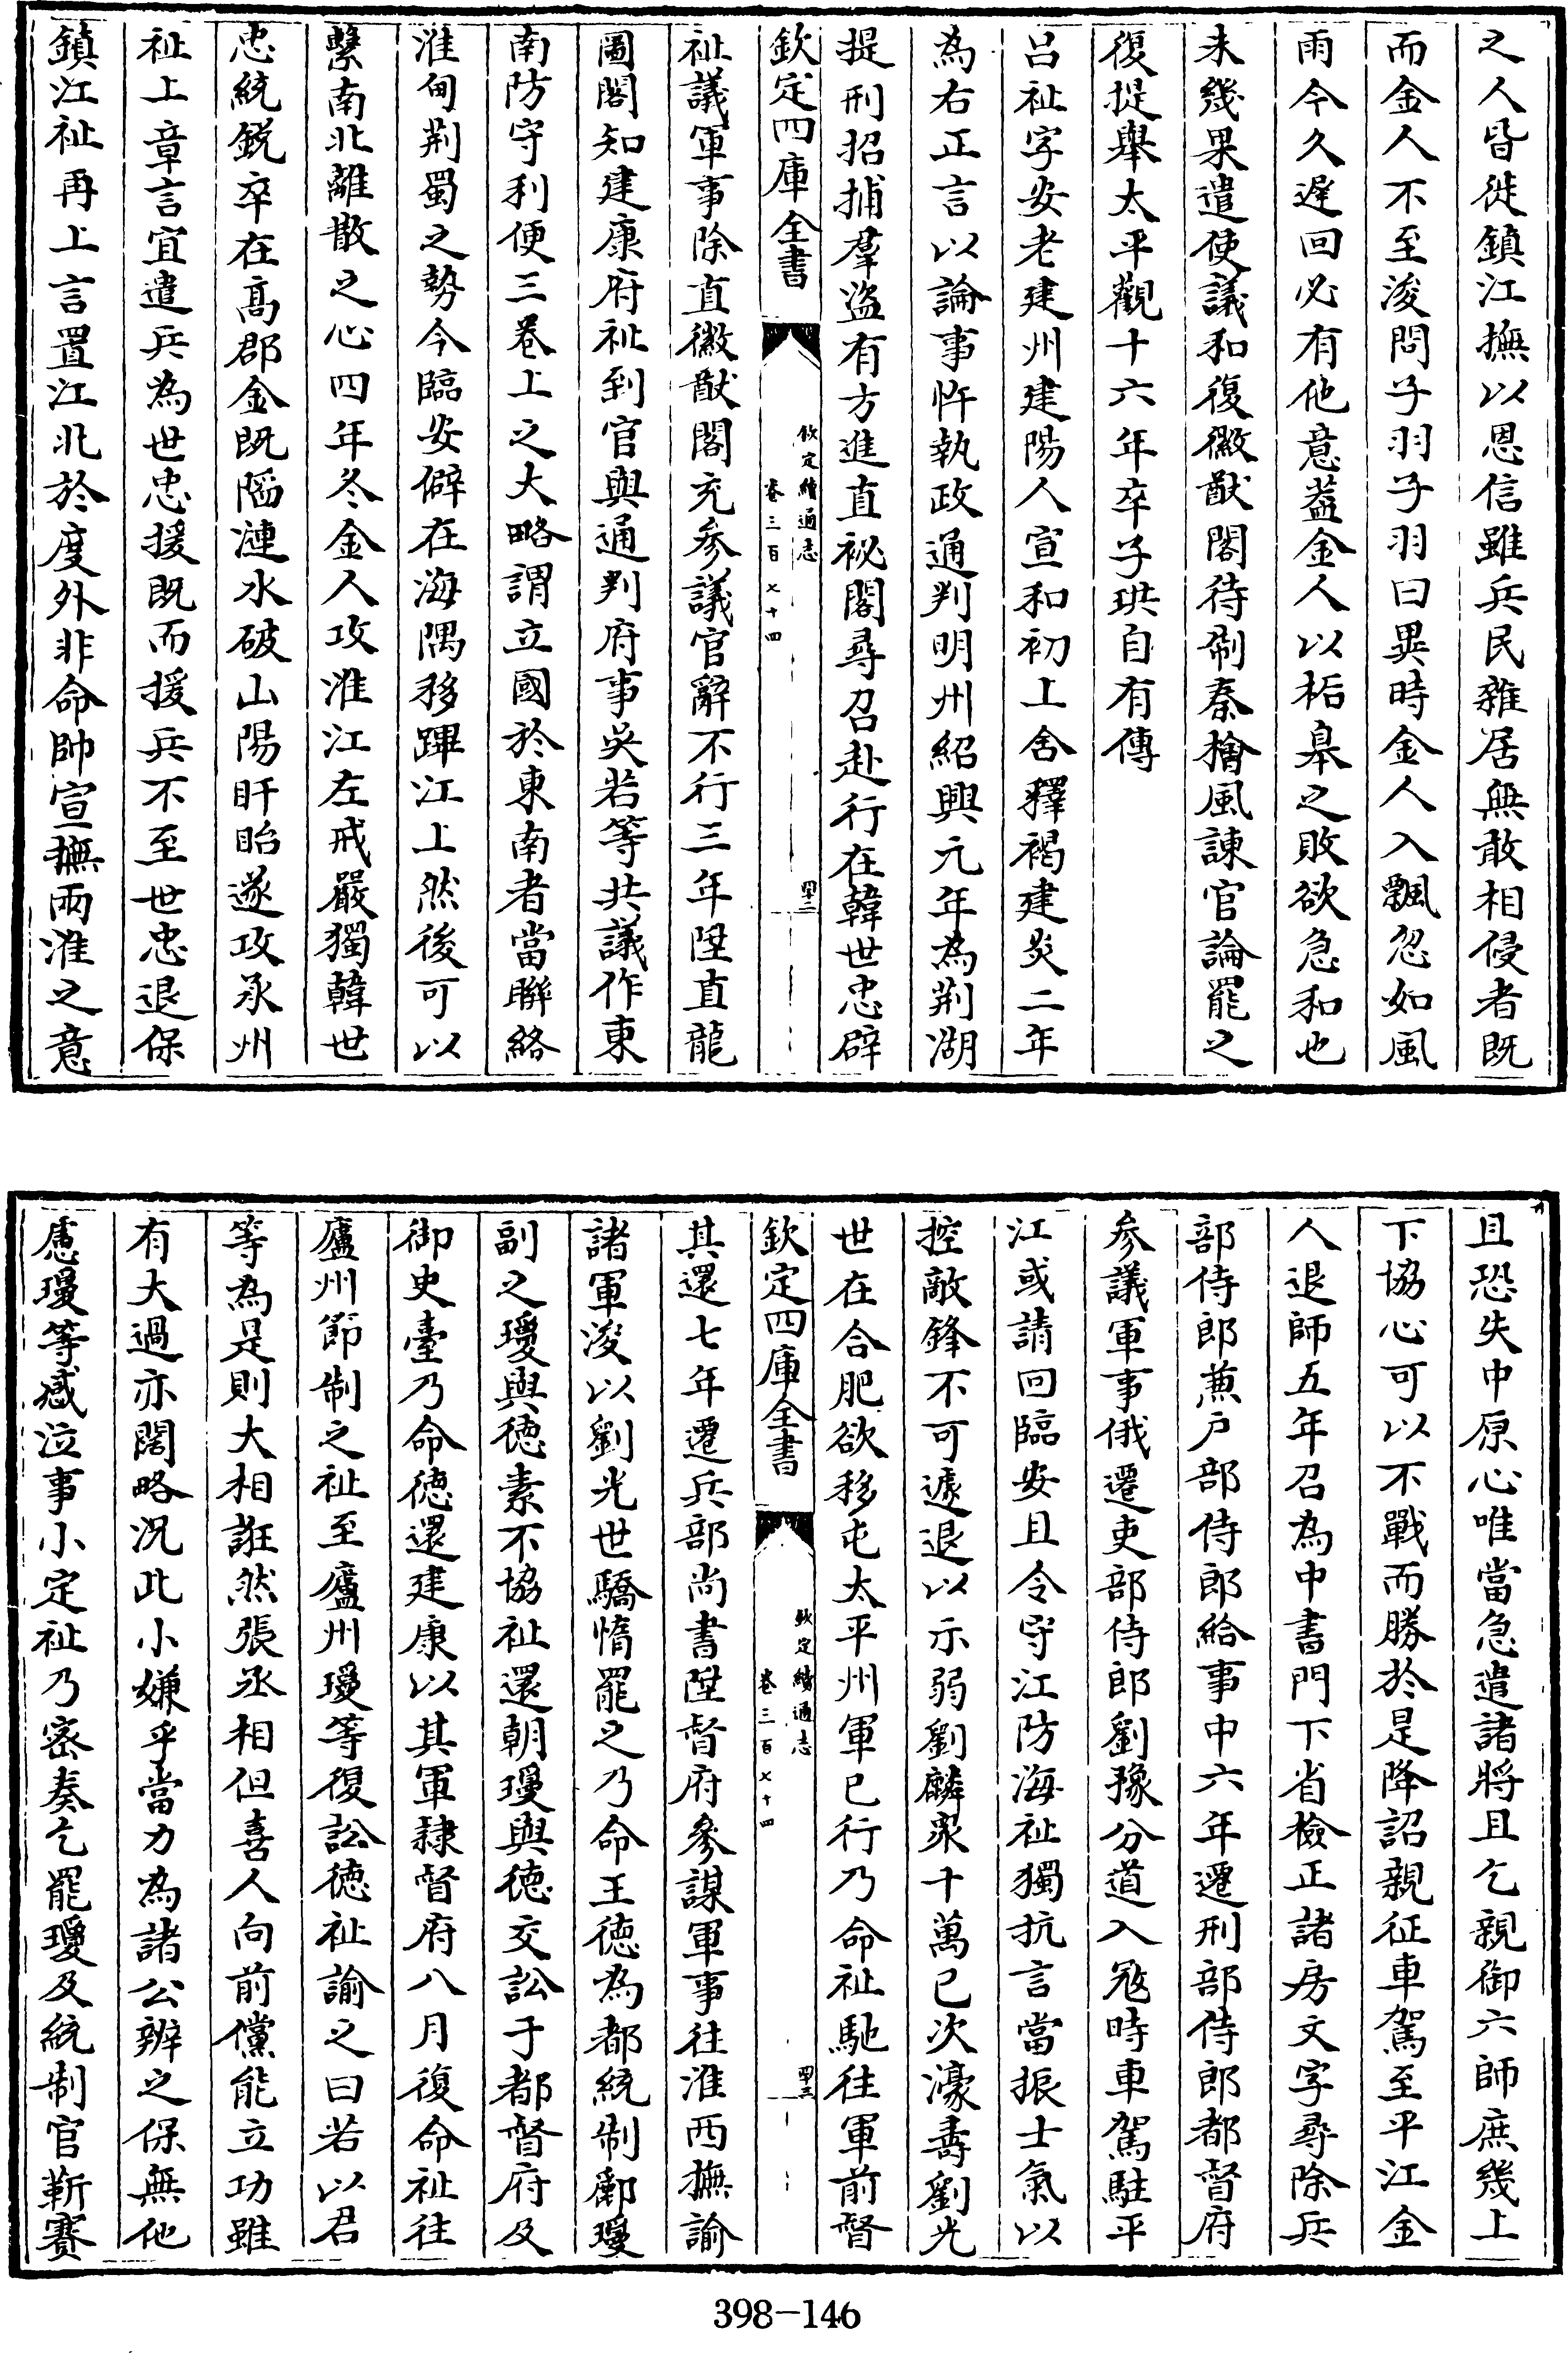 之人皆徙鎮江撫以恩信雖兵民雜居無敢相侵者既
而金人不至浚問子羽子羽曰異時金人入飄忽如風
雨今久遲回必有他意蓋金人以柘臯之敗欲急和也
未幾果遣使議和復徽猷閣待制秦檜風諫官論罷之
復提舉太平觀十六年卒子珙自有傳
吕祉字安老建州建陽人宣和初上舍釋褐建炎二年
為右正言以論事忤執政通判明州紹興元年為荆湖
提刑招捕羣盜有方進直祕閣尋召赴行在韓世忠辟
欽定四庫全書
欽定續通志
卷三百七十四
四十二
祉議軍事除直徽猷閣充參議官辭不行三年陞直龍
圖閣知建康府祉到官與通判府事吳若等共議作東
南防守利便三卷上之大略謂立國於東南者當聯絡
淮甸荆蜀之勢今臨安僻在海隅移蹕江上然後可以
繫南北離散之心四年冬金人攻淮江左戒嚴獨韓世
忠統銳卒在高郡金既陷漣水破山陽盱眙遂攻承州
祉上章言宜遣兵為世忠援既而援兵不至世忠退保
鎮江祉再上言置江北於度外非命帥宣撫兩淮之意
且恐失中原心唯當急遣諸將且乞親御六師庶幾上
下協心可以不戰而勝於是降詔親征車駕至平江金
人退師五年召為中書門下省檢正諸房文字尋除兵
部侍郎兼户部侍郎給事中六年遷刑部侍郎都督府
參議軍事俄遷吏部侍郎劉豫分道入宼時車駕駐平
江或請回臨安且令守江防海祉獨抗言當振士氣以
控敵鋒不可遽退以示弱劉麟衆十萬已次濠壽劉光
世在合肥欲移屯太平州軍已行乃命祉馳往軍前督
欽定四庫全書
欽定續通志
卷三百七十四
四十三
其還七年遷兵部尚書陞督府參謀軍事往淮西撫諭
諸軍浚以劉光世驕惰罷之乃命王徳為都統制酈瓊
副之瓊與徳素不協祉還朝瓊與徳交訟于都督府及
御史臺乃命徳還建康以其軍隸督府八月復命祉往
廬州節制之祉至廬州瓊等復訟徳祉諭之曰若以君
等為是則大相誑然張丞相但喜人向前儻能立功雖
有大過亦闊略况此小嫌乎當力為諸公辨之保無他
慮瓊等感泣事小定祉乃密奏乞罷瓊及統制官靳賽
398-146